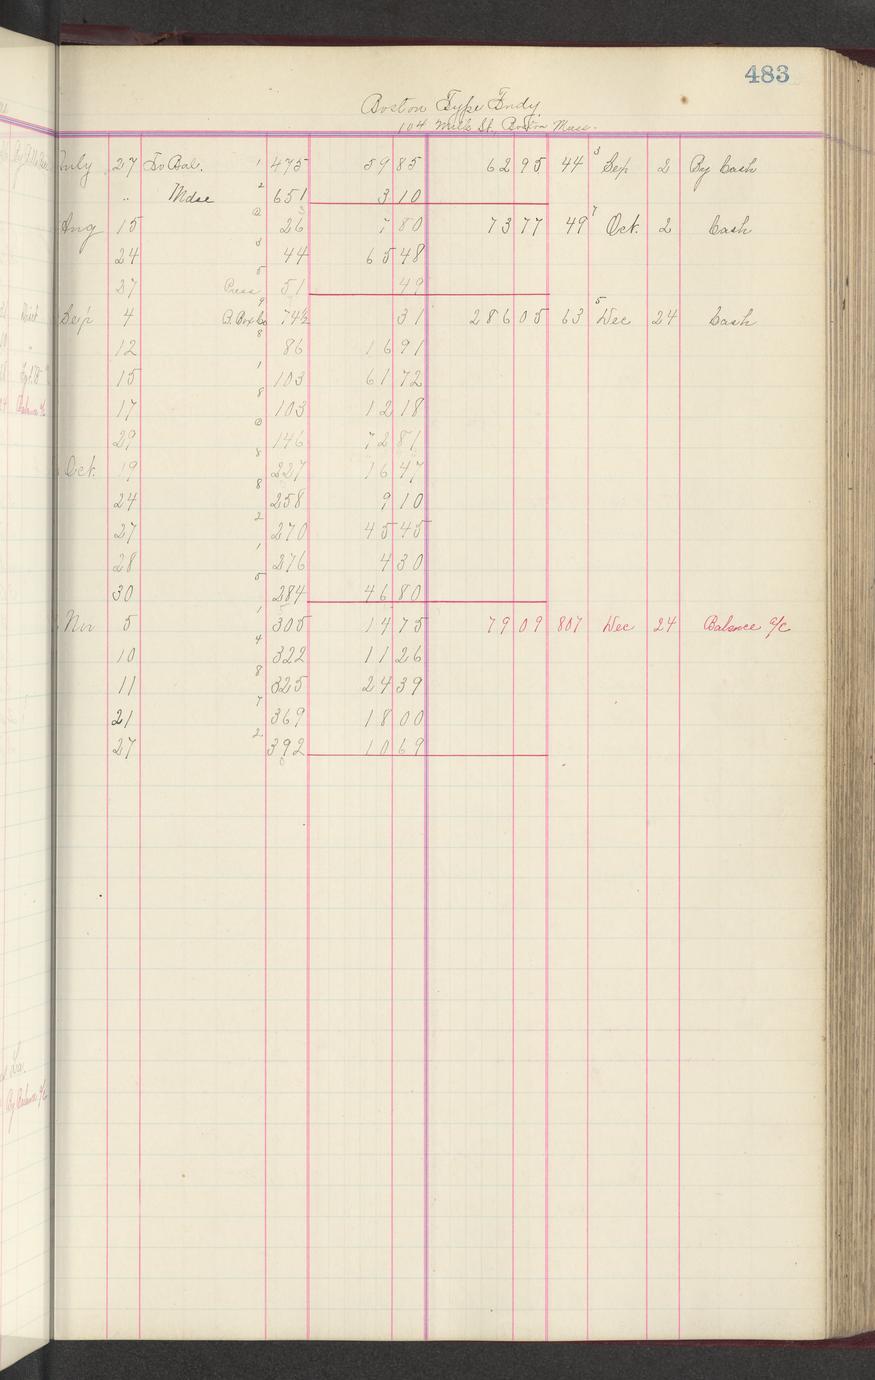 483
Boston Type Fndy
104 Milk St, Boston Mass.
July 27 To Bal. 1 475 59 85 62 95 44 3 Sep 2 By Cash
" Mdse 2 651 3 10
Aug 15 26 7 80 73 77 49 7 Oct. 2 Cash
24 3 44 65 48
27 Press 5 51 49
Sep 4 B. Box Co 9 74½ 31 286 05 63 5 Dec 24 Cash
12 8 86 16 91
15 1 103 61 72
17 8 103 12 18
29 146 72 81
Oct. 19 8 227 16 47
24 8 258 9 10
27 2 270 45 45
28 1 276 4 30
30 5 284 46 80
Nov 5 1 305 14 75 79 09 807 Dec 24 Balance a/c
10 4 322 11 26
11 8 325 24 39
21 7 369 18 00
27 2 392 10 69
By Balance a/c